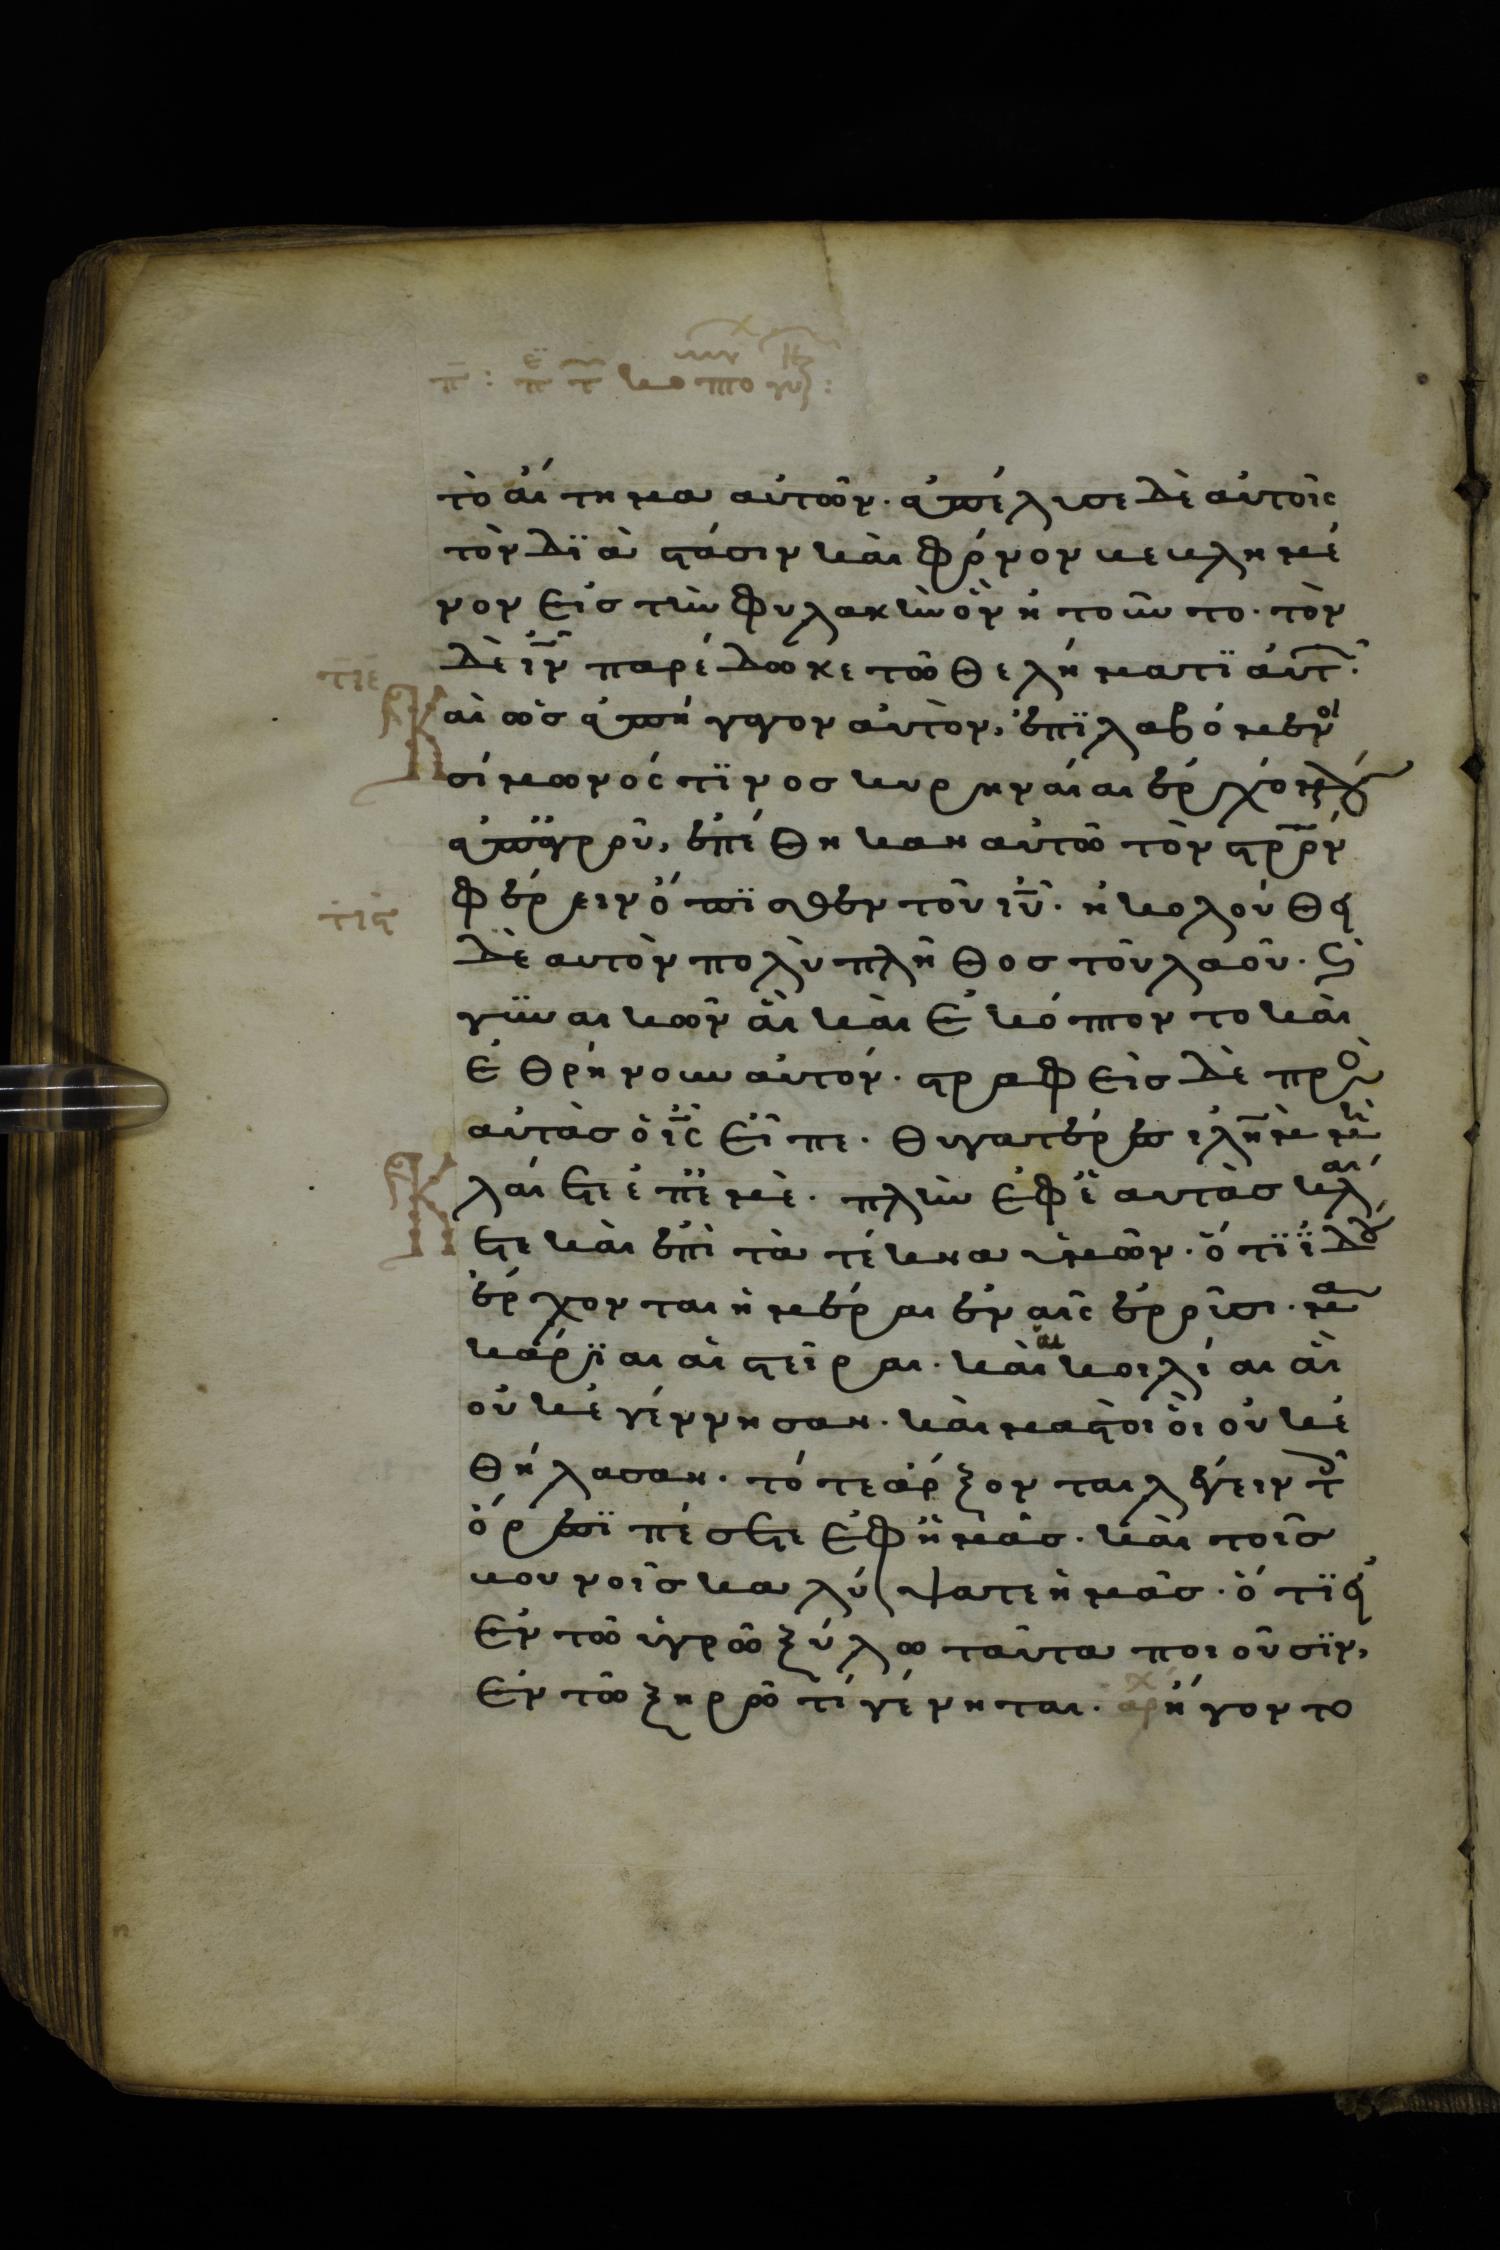 τὸ αἴτημα αὐτῶν· ἀπέλυσε δὲ αὐτοῖς
τὸν δϊὰ στάσιν καὶ φόνον βεβλημέ
νον εἰς τὴν φυλακὴν ὃν ἠτοῦντο· τὸν
δὲ ι̅ν̅ παρέδωκε τῶ θελήματϊ αὐτ̅·
τ̅ι̅ε̅
Καὶ ὡς ἀπήγαγον αὐτὸν, ἐπϊλαβόμενοι
σίμωνός τϊνος κυρηναίαι ἐρχόμενου
ἀπαγροῦ, ἐπέθηκαν αὐτῶ τὸν στ̅ρ̅ο̅ν̅
φέρειν ὄπϊσθεν τοῦ ι̅υ̅· ἠκολούθει
τ̅ι̅ς̅
δὲ αυτὸν πολὺ πλῆθος τοῦ λαοῦ· ϗ
γϋναικῶν ἃι καὶ ἐκόπτοντο καὶ
ἐθρήνουν αὐτόν· στραφεὶς δὲ πρὸς
αὐτὰς ὁ ι̅ς̅ εἶπε· θυγατέρες ιλ̅η̅μ̅ μὴ
Κλαίετε ἐπεμὲ· πλὴν ἐφἑαυτὰς κλαί
ετε καὶ ἐπὶ τὰ τέκνα ὑμῶν· ὅτϊ ϊδοὺ
ἔρχονται ἡμέραι ἐν αἷς ἐροῦσι· μα
κάρϊαι αἱ στεῖραι· καὶ αἱ κοιλίαι ἃι
οὐκ ἐγέννησαν· καὶ μαστοὶ ὃι οὐκ ἐ
θήλασαν· τότε ἄρξονται λέγειν τοῖς
ὄρεσϊ πέσετε ἐφἡμᾶς· καὶ τοῖς
βουνοῖς καλύψατε ἡμᾶς· ὅτϊ εἰ
ἐν τῶ ὑγρῶ ξύλω ταῦτα ποιοῦσϊν,
ἐν τῶ ξηρῶ τί γένηται· ἤγοντο